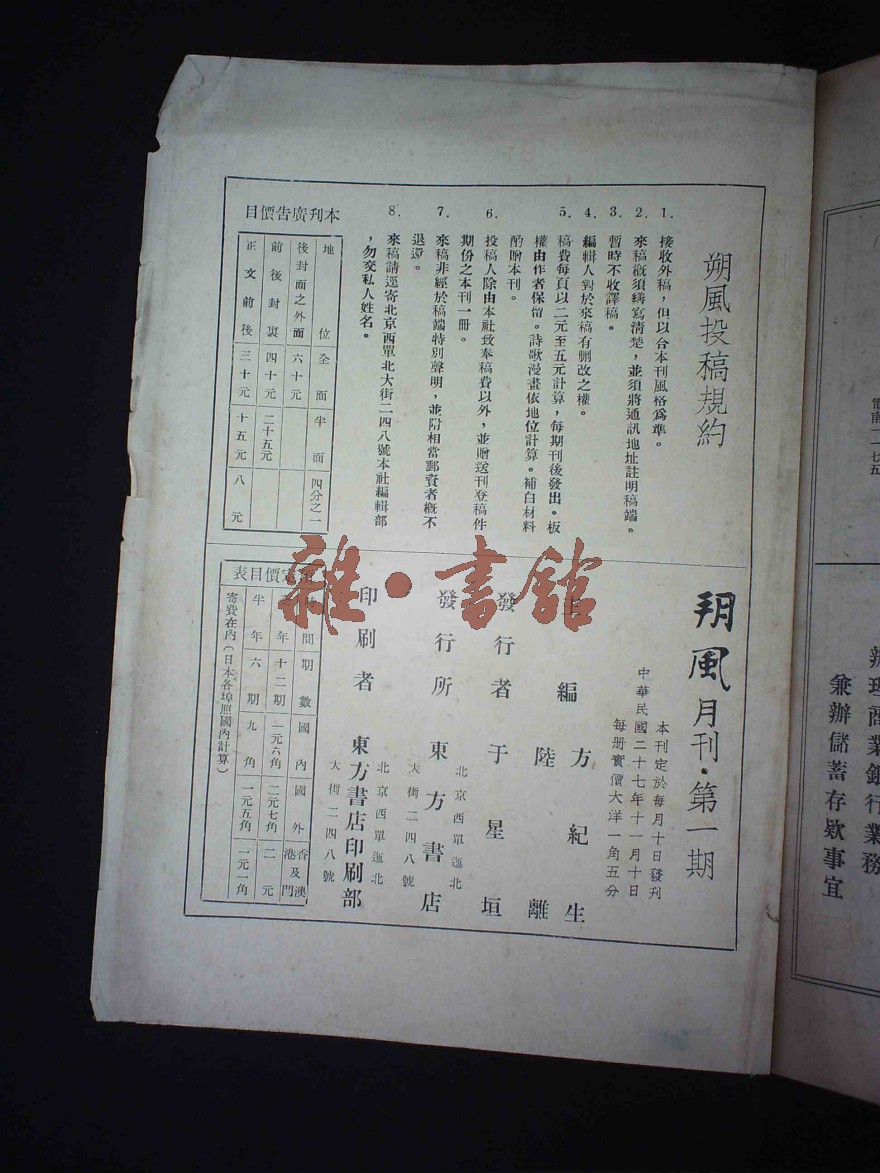 朔風投稿規約
1. 接收外稿，但以合本刊風格爲準。
2. 來稿概須繕寫清楚，並須將通訊地址註明稿端。
3. 暫時不收譯稿。
4. 編輯人對於來稿有刪改之權。
5. 稿費每頁以二元至五元計算，每期刊後發出。板
權由作者保留。詩歌漫畫依地位計算。補白材料
酌贈本刊。
6. 投稿人除由本社致奉稿費以外，並贈送刊登稿件
期份之本刊一冊。
7. 來稿非經於稿端特別聲明，並附相當郵資者概不
退還。
8. 來稿請逕寄北京西單北大街二四八號本社編輯部
，勿交私人姓名。
本刊廣吿價目
地位 全面 半面 四分之一
後封面之外面 六十元
前後封裏 四十元 二十五元
正文前後 三十元 十五元 八元
朔風月刊·第一期
本刊定於每月十日發刊
中華民國二十七年十一月十日
每册實價大洋一角五分
主編 方紀生
陸離
發行者 于星垣
北京西單迤北
發行所 東方書店
大街二四八號
北京西單迤北
印刷者 東方書店印刷部
大街二四八號
定價目表
時間 期數 國內 國外 香港及澳門
年 十二期 一元六角 二元七角 二元
半年 六期 九角 一元五角 一元一角
寄費在內（日本各埠照國內計算）
電南一一七五
辦理商業銀行業務
兼辦儲蓄存欵事宜
雜·書館